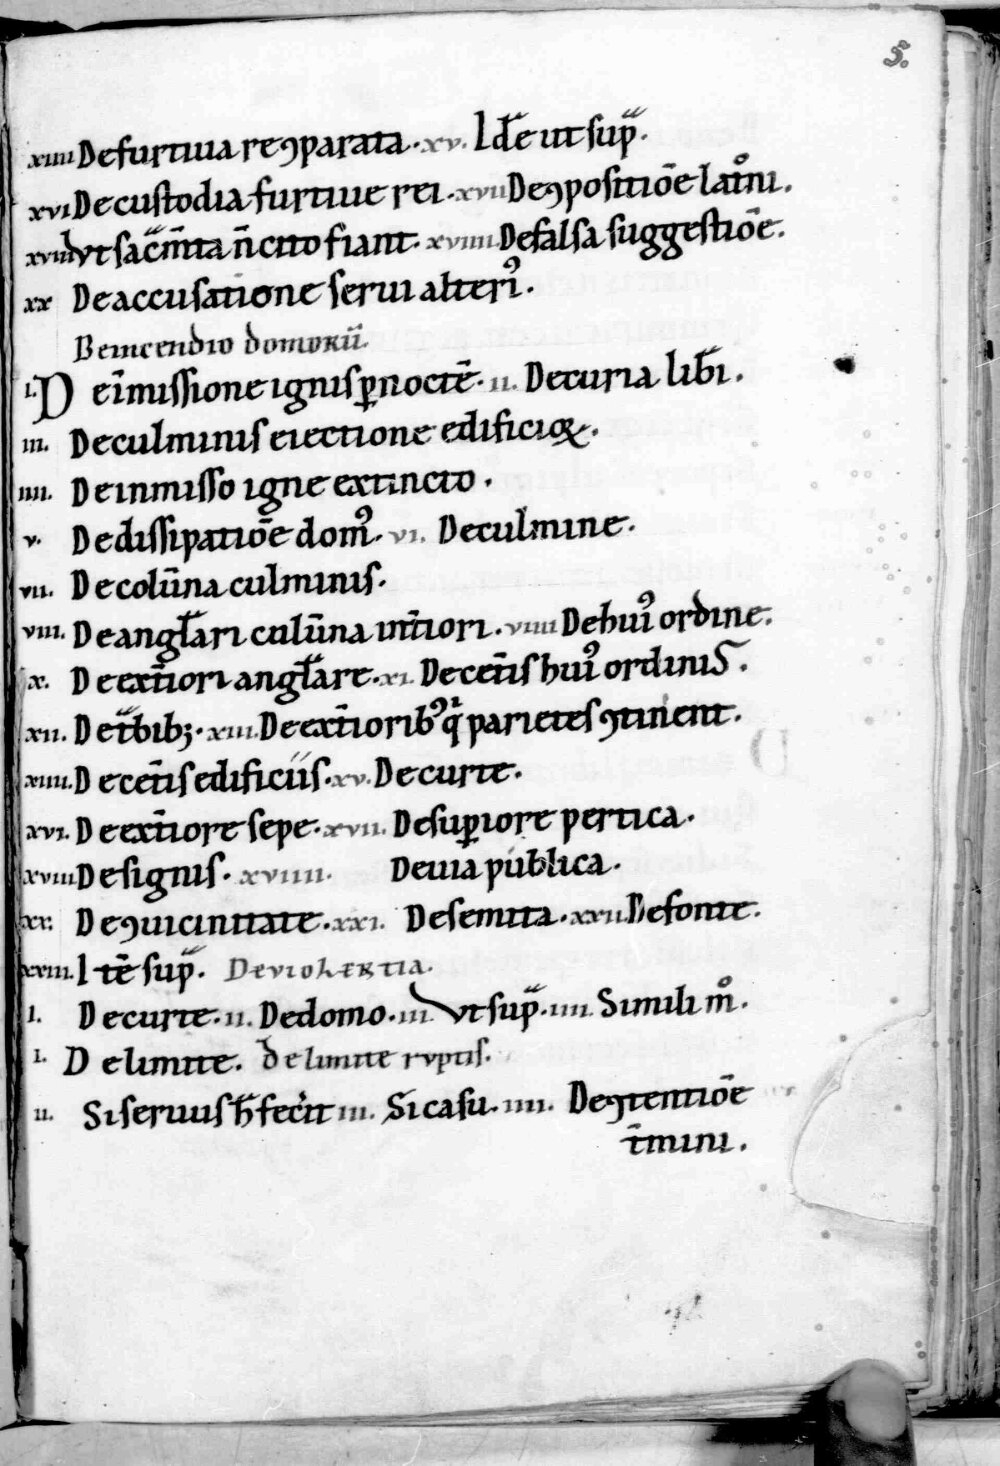 5.
xiiii De furtiua re ꝯparata. xv. Idē ut sup̄.
xvi De custodia furtiue rei. xvii De ꝯpositiōe latͦni.
xviii Vt sac̄m̄ta n̄ cito fiant. xviiii. De falsa suggestiōe.
xx De accusatione serui alteriꝰ.
De incendio domorū.
i. De īmissione ignis ꝑ noctē. ii. De curia lib̄i.
iii. De culminis eiectione edificioꝝ.
iiii. De inmisso igne extincto.
v. De dissipatiōe domꝰ. vi. De culmine.
vii. De colūna culminis.
viii. De angl̄ari culūna int̄iori. viiii De huiꝰ ordine.
x. De ext̄iori angl̄are. xi. De cet̄is huiꝰ ordinis.
xii. De t̄bibꝫ. xiii. De ext̄ioribꝰ q̄ parietes ꝯtinent.
xiiii. De cet̄is edificiis. xv. De curte.
xvi. De ext̄iore sepe. xvii. De suꝑiore pertica.
xviii De signis. xviiii. De uia publica.
xx. De ꝯuicinitate. xxi. De semita. xxii De fonte.
xxiii. Itē sup̄. De violentia.
i. De curte. ii. De domo. iii. Vt sup̄. iiii. Simili mͦ.
i. De limite. De limite ruptis.
ii. Si seruus h̄ fecit iii. Si casu. iiii. De ꝯtentiōe
t̄mini.